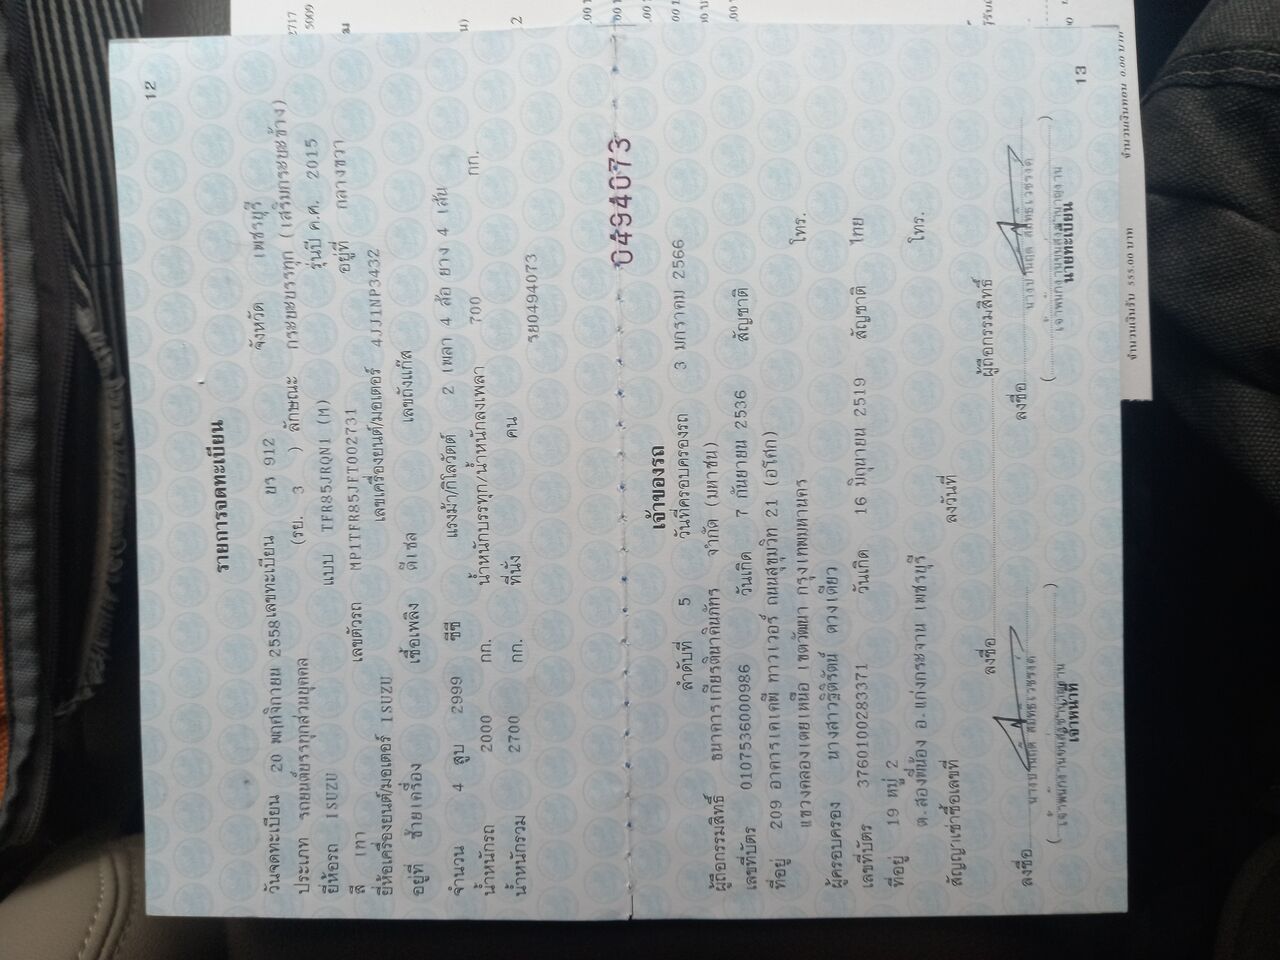 12
รายการจดทะเบียน
วันจดทะเบียน 20 พฤศจิกายน 2558 เลขทะเบียน ยว 912 จังหวัด เพชรบุรี
ประเภท รถยนต์บรรทุกส่วนบุคคล (รย. 3 ) ลักษณะ กระบะบรรทุก (เสริมกระบะข้าง)
ยี่ห้อรถ ISUZU แบบ TFR85JRQN1 (M) รุ่นปี ค.ศ. 2015
สี เทา เลขตัวรถ MP1TFR85JFT002731 อยู่ที่ กลางขวา
ยี่ห้อเครื่องยนต์/มอเตอร์ ISUZU เลขเครื่องยนต์/มอเตอร์ 4JJ1NP3432
อยู่ที่ ซ้ายเครื่อง เชื้อเพลิง ดีเซล เลขถังแก๊ส
จำนวน 4 สูบ 2999 ซีซี แรงม้า/กิโลวัตต์ 2 เพลา 4 ล้อ ยาง 4 เส้น
น้ำหนักรถ 2000 กก. น้ำหนักบรรทุก/น้ำหนักลงเพลา 700 กก.
น้ำหนักรวม 2700 กก. ที่นั่ง คน
0494073
0494073
เจ้าของรถ
ลำดับที่ 5 วันที่ครอบครองรถ 3 มกราคม 2566
ผู้ถือกรรมสิทธิ์ ธนาคารเกียรตินาคินภัทร จำกัด (มหาชน)
เลขที่บัตร 0107536000986 วันเกิด 7 กันยายน 2536 สัญชาติ
ที่อยู่ 209 อาคารเคเคพี ทาวเวอร์ ถนนสุขุมวิท 21 (อโศก)
แขวงคลองเตยเหนือ เขตวัฒนา กรุงเทพมหานคร โทร.
ผู้ครอบครอง นางสาวฐิติรัตน์ ดวงเดียว
เลขที่บัตร 3760100283371 วันเกิด 16 มิถุนายน 2519 สัญชาติ ไทย
ที่อยู่ 19 หมู่ 2
ต.สองพี่น้อง อ.แก่งกระจาน เพชรบุรี โทร.
สัญญาเช่าซื้อเลขที่ ลงวันที่
ลงชื่อ ผู้ถือกรรมสิทธิ์
ลงชื่อ ลงชื่อ
เจ้าหน้าที่ นายทะเบียน
13
จำนวนเงินรับ 555.00 บาท จำนวนเงินทอน 0.00 บาท